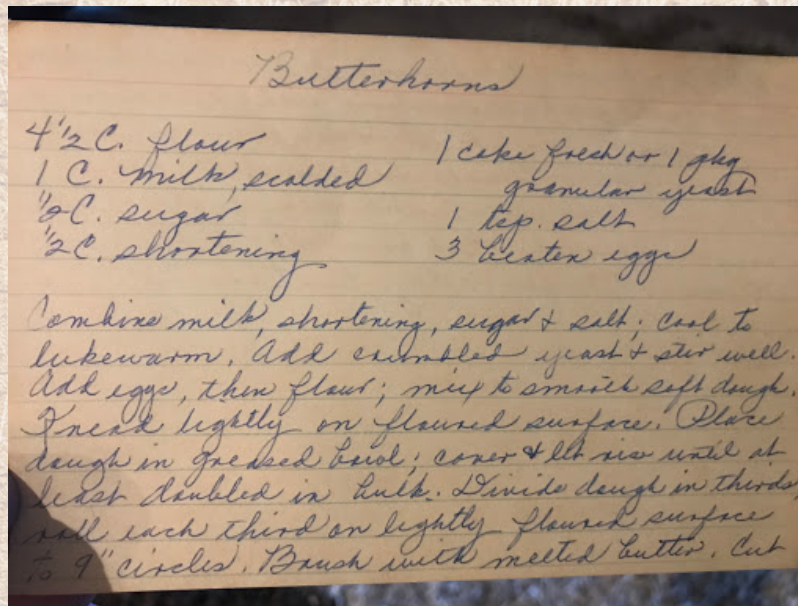 Butterhorns
4 1/2 C. flour
1 C. milk, scalded
1/2 C. sugar
1/2 C. shortening
1 cake fresh or 1 pkg
granular yeast
1 tsp. salt
3 beaten eggs
Combine milk, shortening, sugar & salt; cool to
lukewarm. Add crumbled yeast & stir well.
Add eggs, then flour; mix to smooth soft dough.
Knead lightly on floured surface. Place
dough in greased bowl; cover & let rise until at
least doubled in bulk. Divide dough in thirds
roll each third on lightly floured surface
to 9" circles. Brush with melted butter. Cut